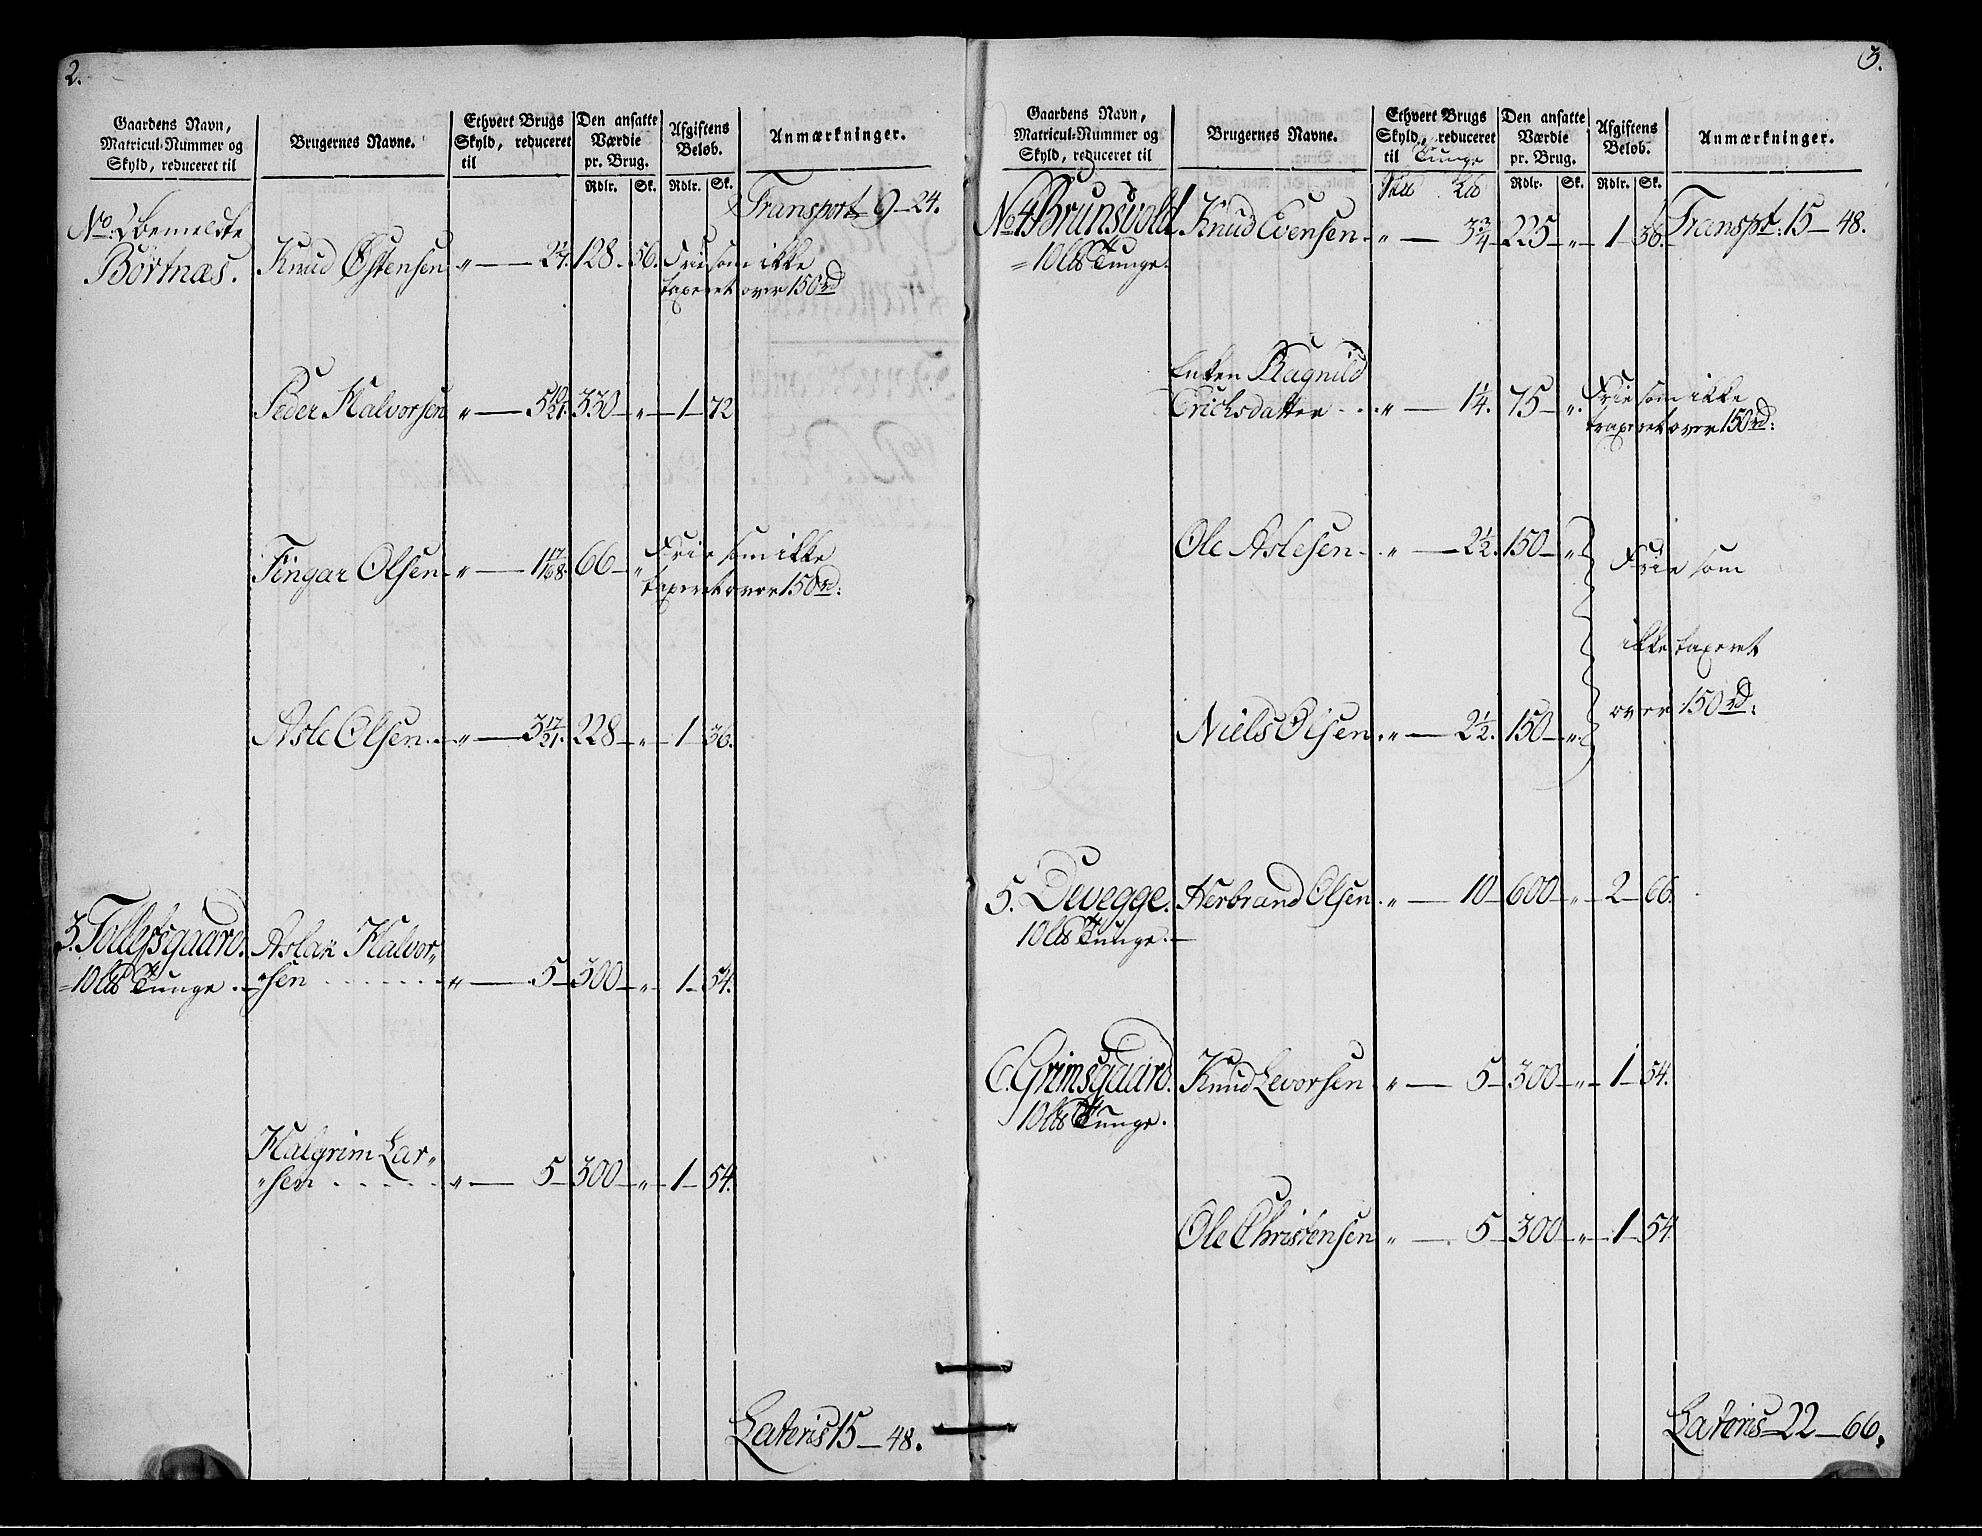 2.
Gaardens Navn,
Matricul-Nummer og
Skyld, reduceret til
Brugernes Navne.
Ethvert Brugs
Skyld, reduceret
til
Den ansatte
Værdie
pr. Brug.
Rdlr. Sk.
Afgiftens
Beløb.
Rdlr. Sk.
Anmærkninger.
Transport 9 — 24.
No. 2 bemeldte
Börtnæs.
Knud Østensen „ — 2 1/7. 128. 56. Frie som ikke
taxeret over 150 rd
Peder Halvorsen „ — 5 10/21. 330 — „ — 1 — 72
Fingar Olsen — „ — 66 — „ Frie som ikke
taxeret over 150 rd:
Asle Olsen — „ — 3 17/21. 228 — „ — 1 — 36.
3. Tollefsgaard. Aslak Halvor„
= 10 Lb Tunge. „sen . . . . . . „ — 5 — 300 — „ — 1 — 54.
Halgrim Lar„
„sen . . . . . „ — 5 — 300 — „ — 1 — 54.
Lateris 15 — 48.
3.
Gaardens Navn,
Matricul-Nummer og
Skyld, reduceret til
Brugernes Navne.
Ethvert Brugs
Skyld, reduceret
til Tunge
Lb
Den ansatte
Værdie
pr. Brug.
Rdlr. Sk.
Afgiftens
Beløb.
Rdlr. Sk.
Anmærkninger.
No 4. Brunsvold Knud Evensen — „ — 3 3/4 225 — „ — 1 — 36. Transpt: 15 — 48.
= 10 Lb Tunge.
Enken Ragnild
Erichsdatter . . „ — 1 1/4. 75 — „. Frie som ikke
taxeret over 150 rd:
Ole Aslesen — „ — 2 1/2. 150 — „
Frie som
ikke taxeret
over 150 rd:
Niels Olsen . „ — 2 1/2. 150 — „
5. Devegge. Herbrand Olsen . „ — 10 — 600 — „ — 2 — 66.
10 Lb Tunge. —
6. Grimsgaard. Knud Levorsen „ — 5 — 300 — „ — 1 — 54.
10 Lb Tunge.
Ole Christensen „ — 5 — 300 — „ — 1 — 54.
Lateris — 22 — 66.